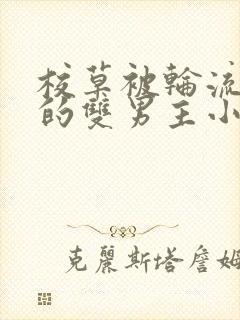 校草被輪流
的雙男主小
克麗斯塔詹姆